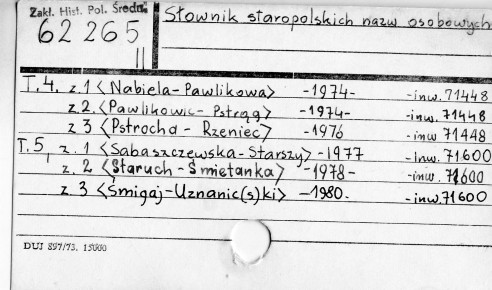 Zakł. Hist. Pol. Średn.
62 265
II
Słownik staropolskich nazw osobowych
T.4, z.1 <Nabiela-Pawlikowa> -1974- -inw.71448
z.2. <Pawlikowic-Pstrąg> -1974- -inw.71448
z 3 <Pstrocha-Rzeniec> -1976 -inw 71448
T.5, z.1 <Sabaszczewska-Starszy> -1977 -inw.71600
z.2 <Staruch-Śmietanka> -1978- -inw.71600
z.3 <Śmigaj-Uznanic(s)ki> -1980- -inw.71600
DUJ 897/73. 15000